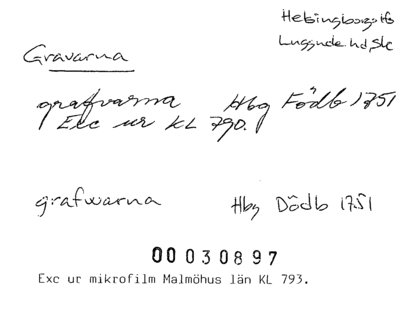 Helsingborgs ifs
Luggude hd, Skc
Gravarna
grafvarna Hbg Födb 1751
Exc ur KL 790.
grafwarna Hbg Dödb 1751
00030897
Exc ur mikrofilm Malmöhus län KL 793.